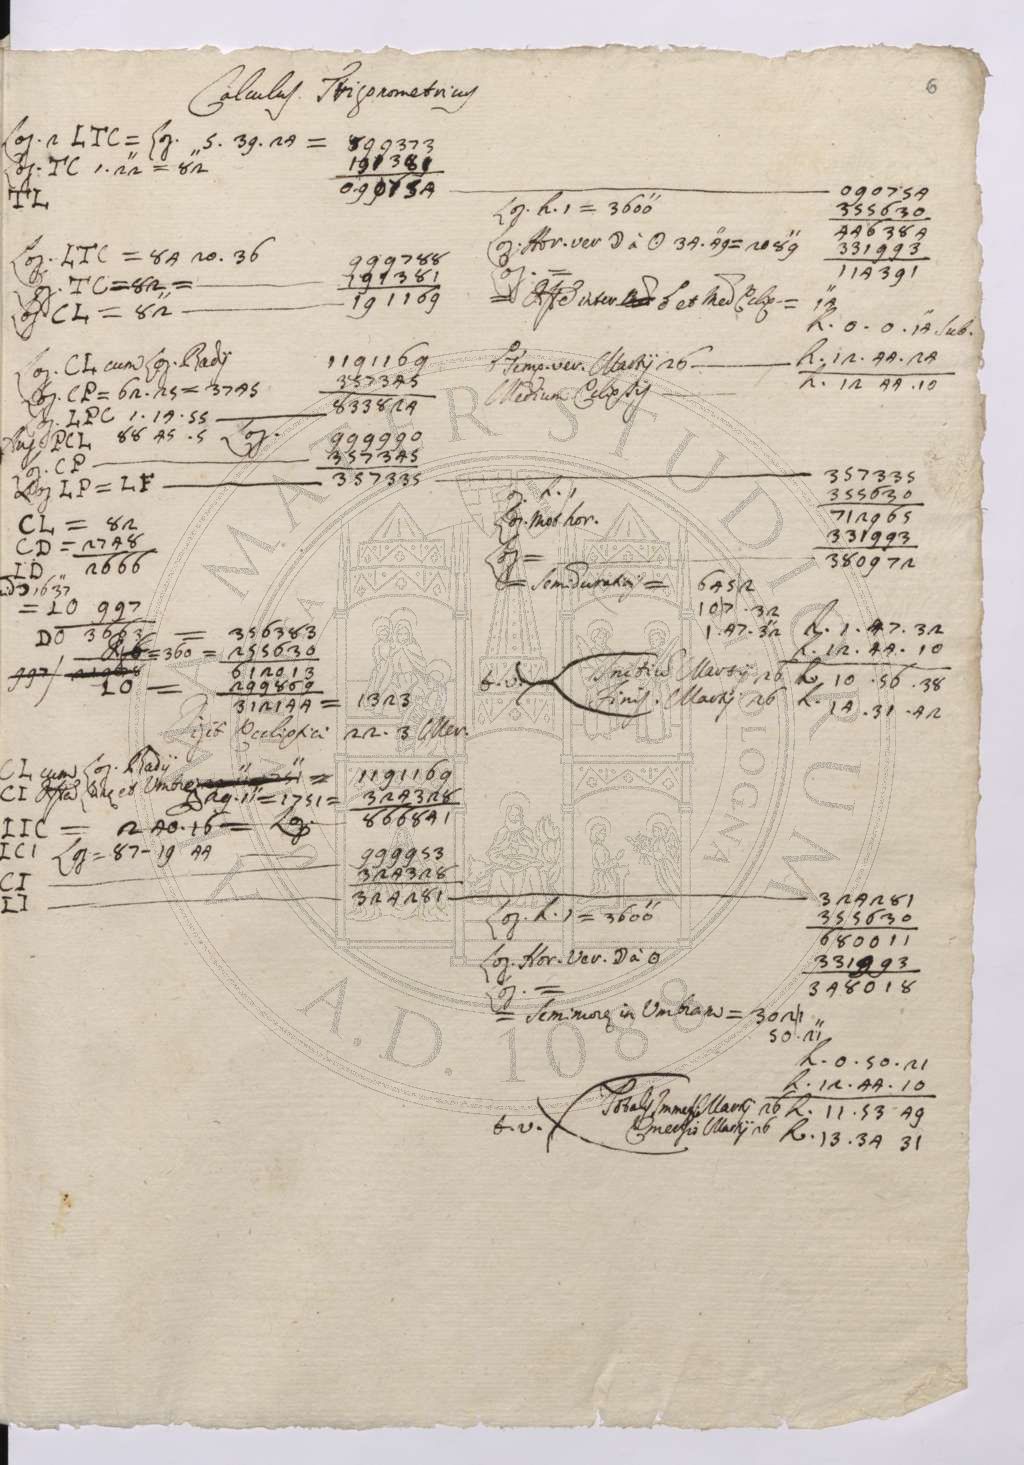 6
Calculus Trigonometricus
Log. 2 LTC = Log. 5. 39. 24 = 899373
Log. TC 1. 22" = 82" 191381
TL 090754 090754
Log. h. 1 = 3600" 355630
446384
Log. Hor. ver ☽ à ☉ 34. 49" = 2089" 331993
Log. = 114391
Log. LTC = 84 20. 36 999788
Log. TC = 82 = 191381
Log CL = 82" 191169
= inter et Med Eclip = 14"
h. 0. 0. 14" Sub.
Temp. ver. Martij 26 h. 12. 44. 24
Medium Eclipsis h. 12 44. 10
Log. CL cum Log. Radij 1191169
Log. CP = 62. 25 = 3745 357345
Log. LPC 1. 14. 55 833824
Ang. PCL 88 45. 5 Log. 999990
Log. CP 357345
Log LP = LF 357335 357335
Log. h. 1 355630
712965
Log. Mot hor. 331993
Log = 380972
= Semiduratio = 6452
107. 32
1. 47. 32" h. 1. 47. 32
h. 12. 44. 10
t. v. Initiu Martij 26 h. 10. 56. 38
Finis. Martij 26 h. 14. 31. 42
CL = 82
CD = 2748
LD 2666
1637"
= LO 997
DO 3663 = 356383
= 360 = 255630
997 612013
LO = 299869
312144 = 1323
Digit Ecliptici 22. 3 Mer.
CL cum Log. Radij = 1191169
CI et Umbrae 29. 11" = 1751 = 324328
LIC = 2 40. 16 = Log. 866841
LCI Log = 87 - 19 44 999953
CI 324328
LI 324281 324281
Log. h. 1 = 3600" 355630
680011
Log. Hor. Ver. ☽ à ☉ 331993
Log. = 348018
= Semimora in Umbram = 3021
50. 21"
h. 0. 50. 21
h. 12. 44. 10
t. v. Totalis Immersio Martij 26 h. 11. 53 49
Emersio Martij 26 h. 13. 34 31
ALMA MATER STUDIORUM
BOLOGNA
A.D. 1088